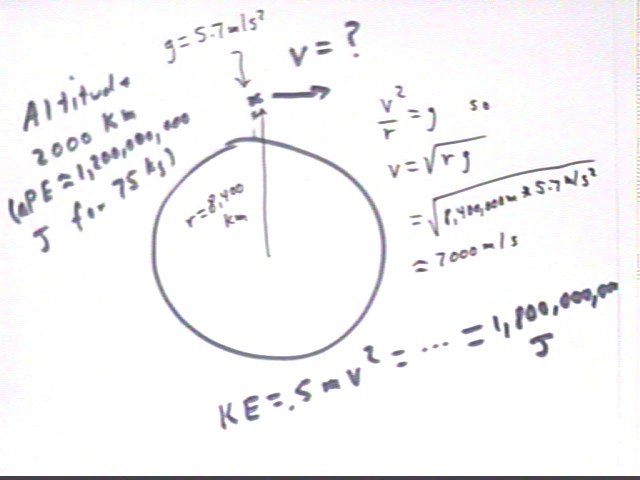 g=5.7m/s²
v=?
Altitude
2000 Km
(ΔPE≈1,200,000,000
J for 75 kg)
r=8,400
km
v²/r = g so
v=√rg
=√8,400,000m*5.7m/s²
≈7000m/s
KE=.5mv²=...=1,800,000,00
J